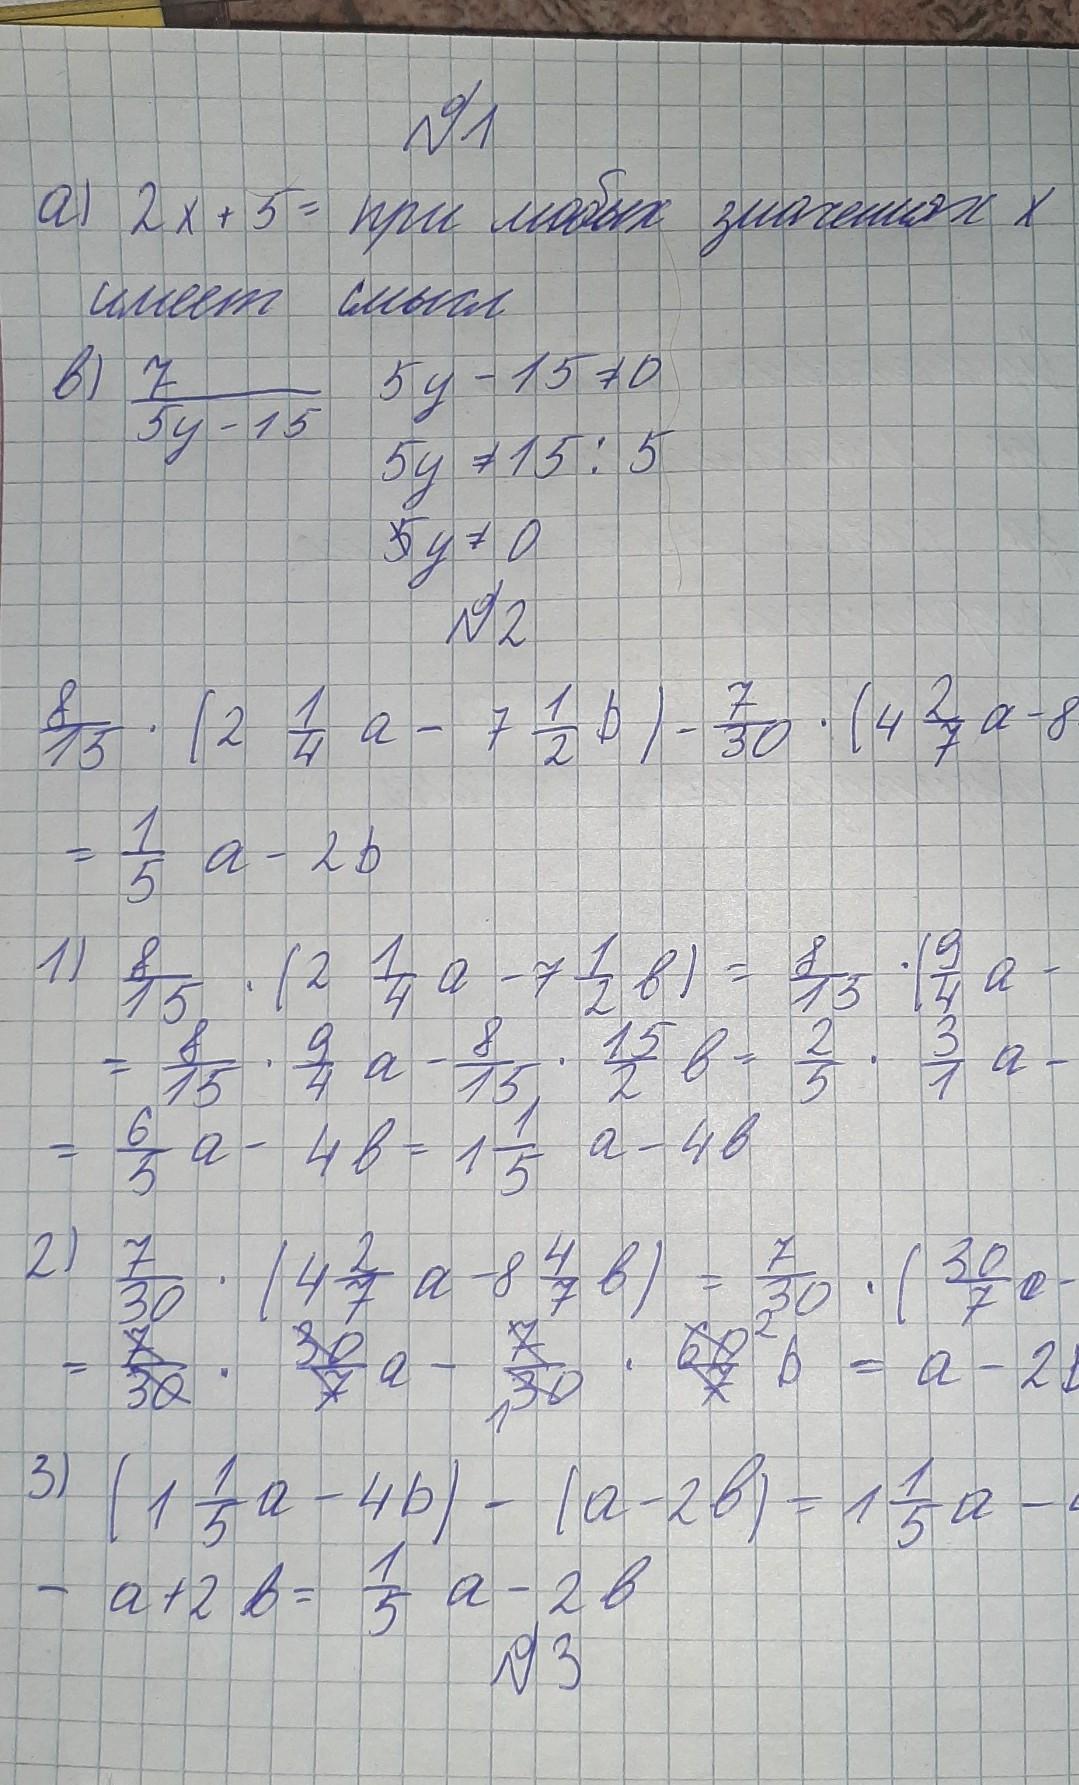 №1
а) 2x + 5 = при любых значениях x
имеет смысл
в) 7/(5y - 15) 5y - 15 ≠ 0
5y ≠ 15 : 5
5y ≠ 0
№2
8/15 · (2 1/4 a - 7 1/2 b) - 7/30 · (4 2/7 a - 8
= 1/5 a - 2b
1) 8/15 · (2 1/4 a - 7 1/2 b) = 8/15 · (9/4 a -
= 8/15 · 9/4 a - 8/15 · 15/2 b = 2/5 · 3/1 a -
= 6/5 a - 4b = 1 1/5 a - 4b
2) 7/30 · (4 2/7 a - 8 4/7 b) = 7/30 · (30/7 a -
= 7/30 · 30/7 a - 7/30 1 · 60/7 2 b = a - 2b
3) (1 1/5 a - 4b) - (a - 2b) = 1 1/5 a -
- a + 2b = 1/5 a - 2b
№3